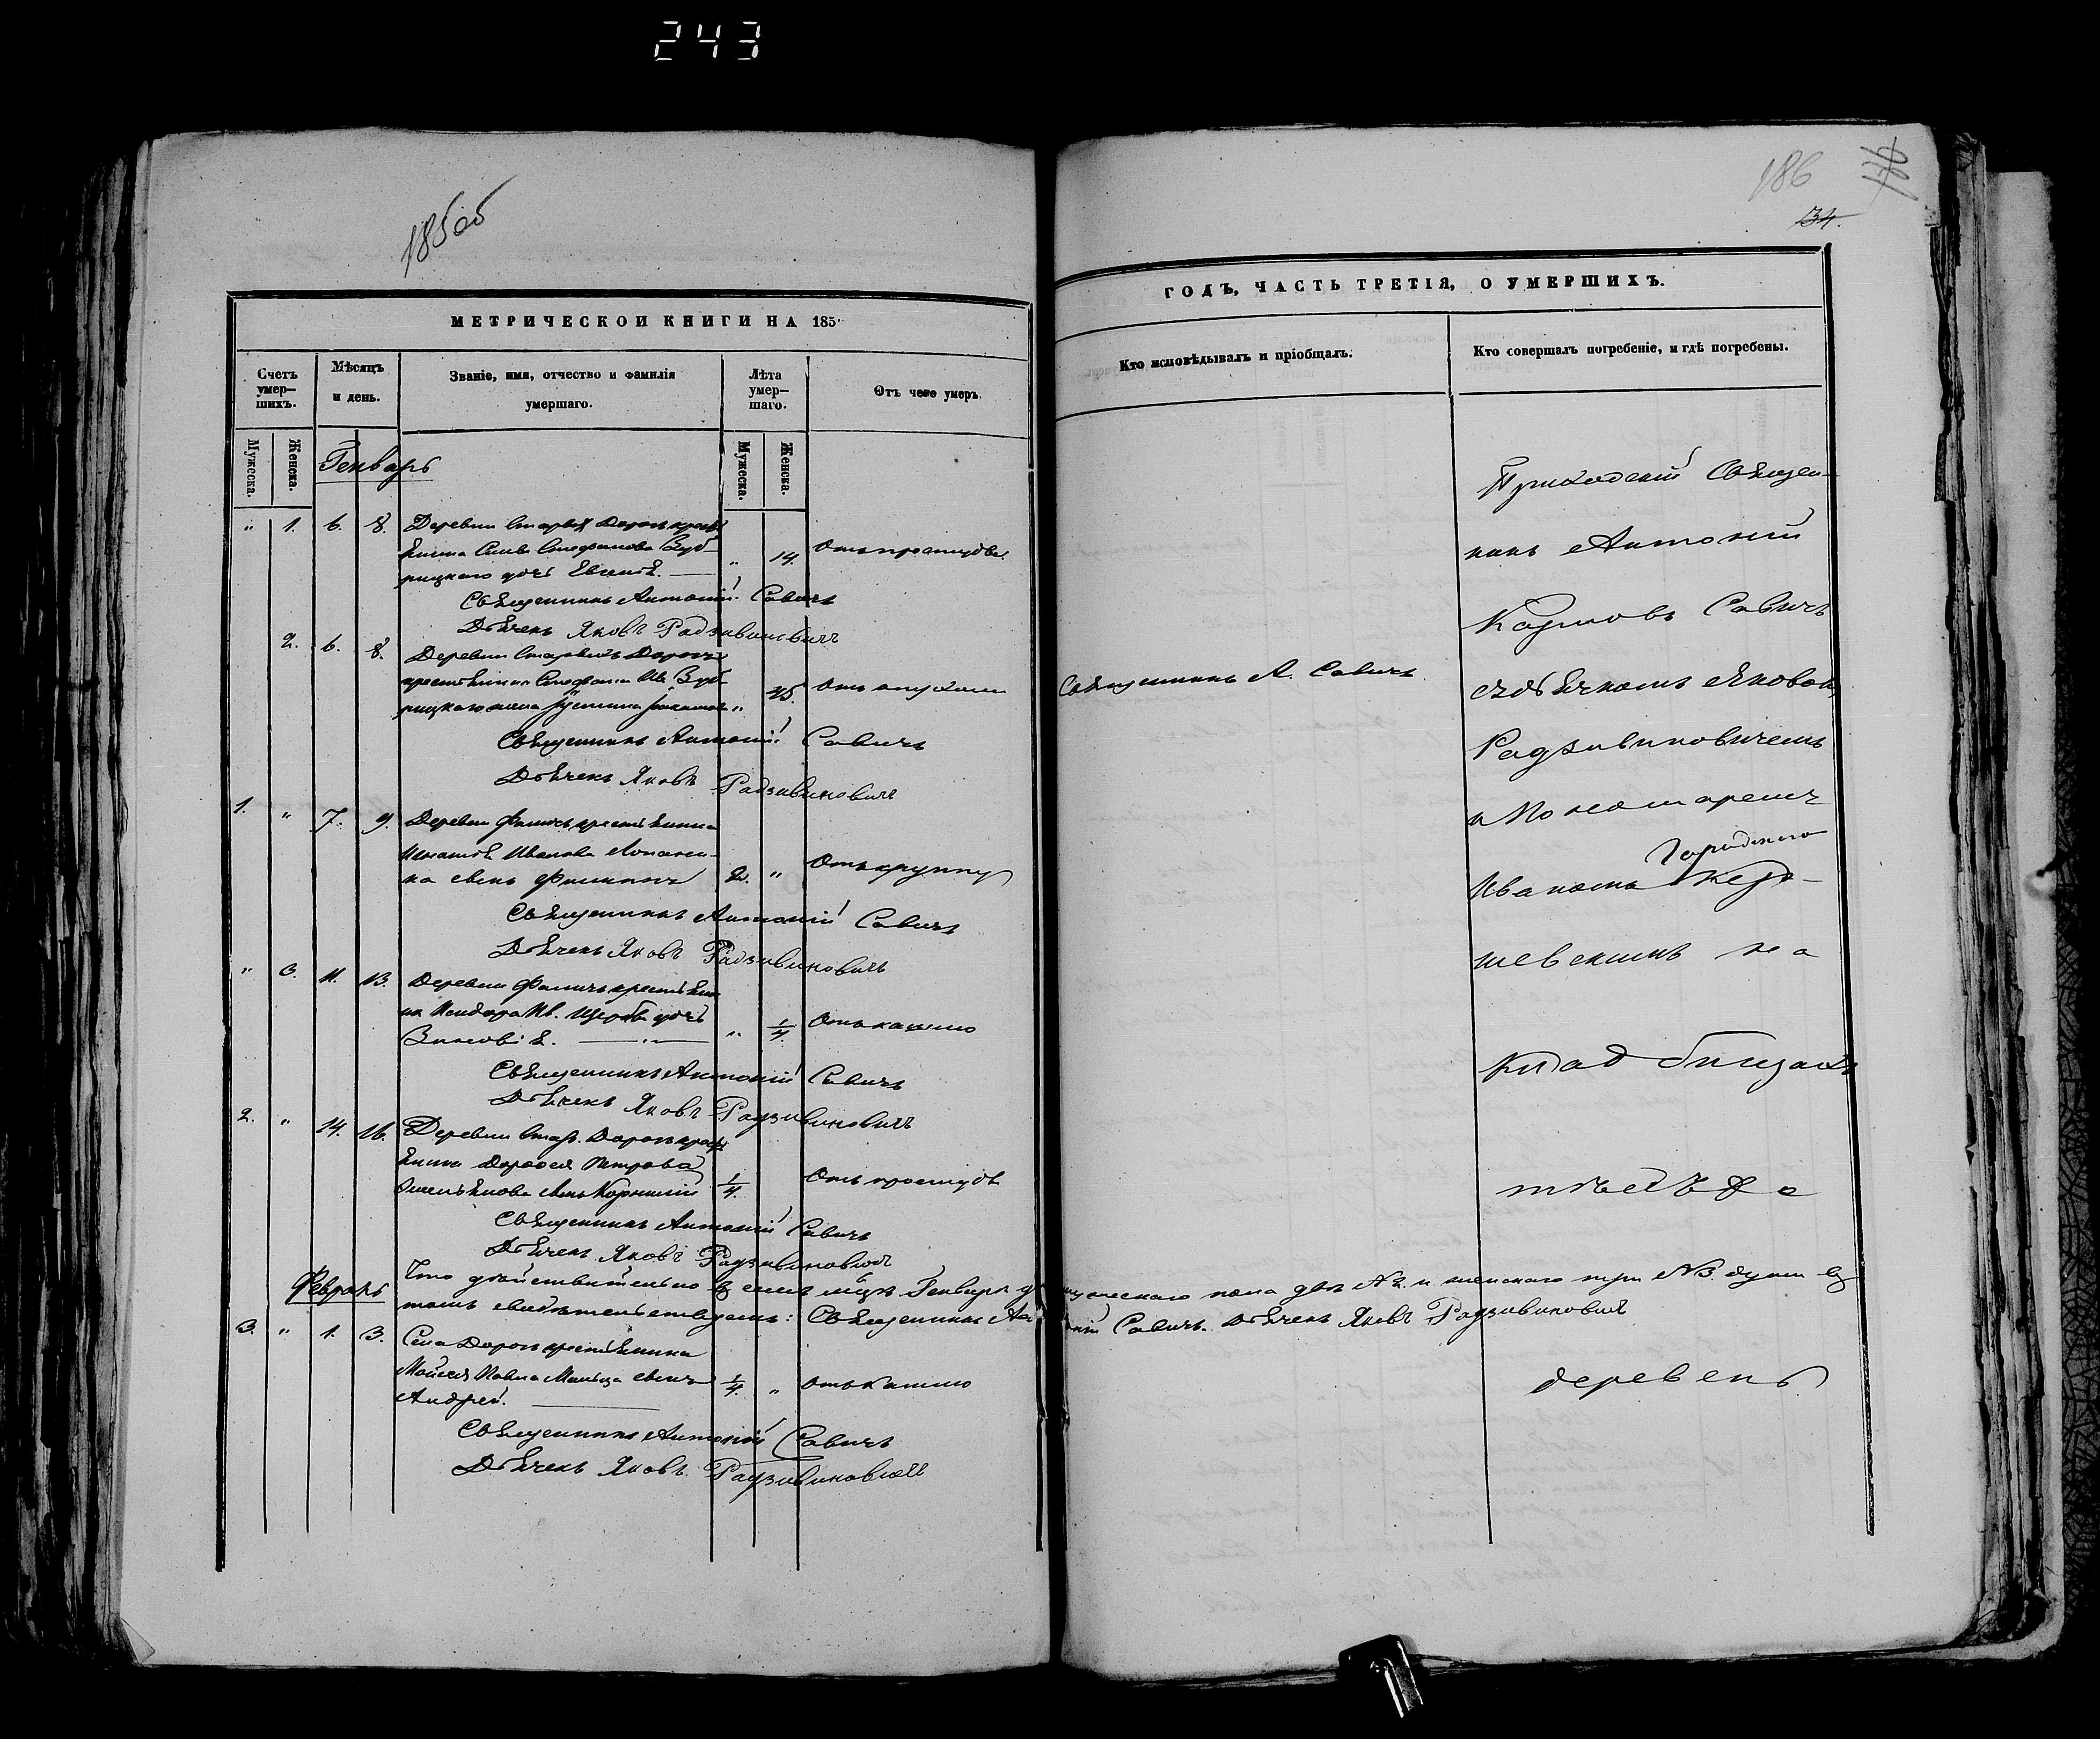 243
185 об
186
34.
МЕТРИЧЕСКОЙ КНИГИ НА 185
ГОДЪ, ЧАСТЬ ТРЕТІЯ, О УМЕРШИХЪ.
Счетъ умер-
шихъ.
Мѣсяцъ
и день.
Званіе, имя, отчество и фамилія
умершаго.
Лѣта
умер-
шаго.
Отъ чего умеръ.
Кто исповѣдывалъ и пріобщалъ.
Кто совершалъ погребеніе, и гдѣ погребены.
Мужеска.
Женска.
Мужеска.
Женска.
Генварь
" 1. 6. 8. Деревни Старых Дорогъ кресть
янина Стефанова Зуб-
рицкаго дочь Евгенія. " 14. Отъ простуды
Священникъ Антоній Савичъ
Дьячекъ Яковъ Радзивиновичъ
2. 6. 8. Деревни Старыхъ Дорогъ
крестьянина Стефана Ив. Зуб-
рицкаго жена Іустина " 45. Отъ опухоли
Священникъ А. Савичъ
Священникъ Антоній Савичъ
Дьячекъ Яковъ Радзивиновичъ
1. " 7. 9. Деревни крестьянина
Игнатія Иванова
сынъ Филиппъ 2. " Отъ круппу
Священникъ Антоній Савичъ
Дьячекъ Яковъ Радзивиновичъ
" 3. 11. 13. Деревни крестьяни
на Исидора Ив. Щербы дочь
Зиновія. " 1/4 Отъ кашлю
Священникъ Антоній Савичъ
Дьячекъ Яковъ Радзивиновичъ
2. " 14. 16. Деревни Стар. Дорогъ кресть
янина Дорофея Петрова
Омельянова сынъ Корнилій 1/4. Отъ простуды
Священникъ Антоній Савичъ
Дьячекъ Яковъ Радзивиновичъ
Что дѣйствительно въ семъ м-цѣ Генварѣ мужескаго пола двѣ №2. и женскаго три №3. души въ
томъ свидѣтельствуемъ: Священникъ Антоній Савичъ. Дьячекъ Яковъ Радзивиновичъ
Февраль
3. " 1. 3. Села Дорогъ крестьянина
Мойсея Павла сынъ 1/4. " Отъ кашлю
Андрей.
Священникъ Антоній Савичъ
Дьячекъ Яковъ Радзивиновичъ
Приходскій Священ-
никъ Антоній
Карповъ Савичъ
съ дьячкомъ Яковомъ
Радзивиновичемъ
и Пономаремъ
Иваномъ
на
кладбищахъ
тѣхъ же
деревень